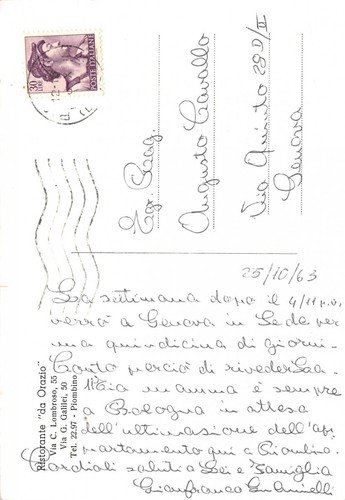 30
LIRE
POSTE ITALIANE
Eg. Rag.
Augusto Cavallo
Via Quinto 28D/
Genova
25/10/63
La settimana dopo il 4/11 p.v.
verrò a Genova in Sede per
una quindicina di giorni-
Conto perciò di rivederLa-
mamma è sempre
a Bologna in attesa
dell'ultimazione dell'ap=
partamento qui a Piombino
Cordiali saluti a Lei e Famiglia
Gianfranco
Ristorante "da Orazio"
Via C. Lombroso, 55
Via G. Galilei, 50
Tel. 22.97 - Piombino